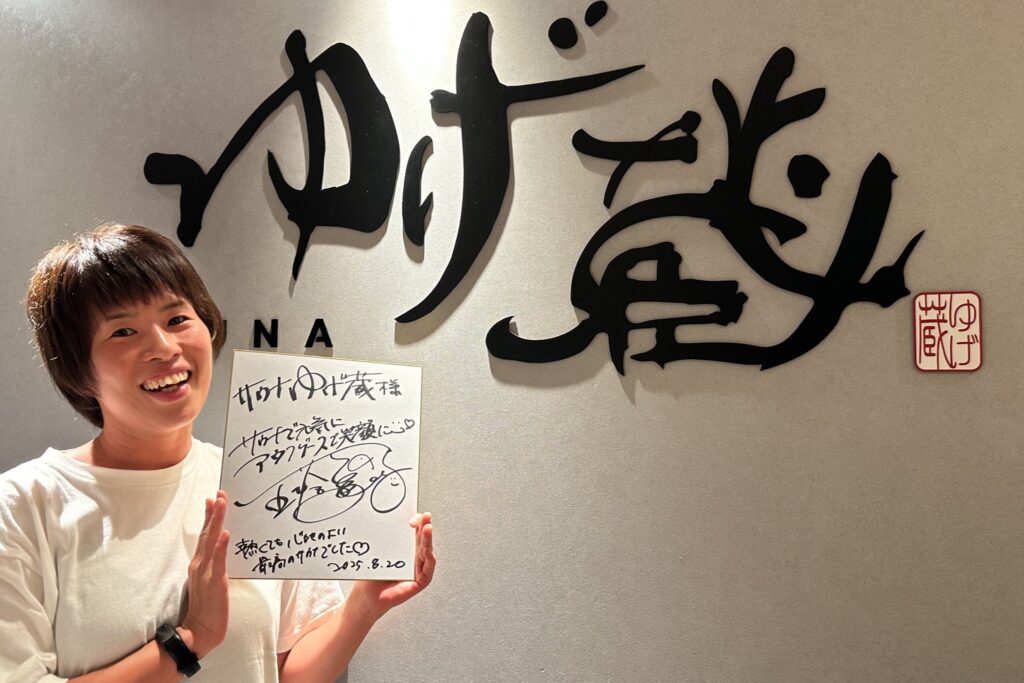 ゆげ蔵
UNA
ゆげ
蔵
サウナゆげ蔵様
サウナで元気に
アウフグースで笑顔に
熱くても心地のよい
最高のサウナでした♡
2025.8.20